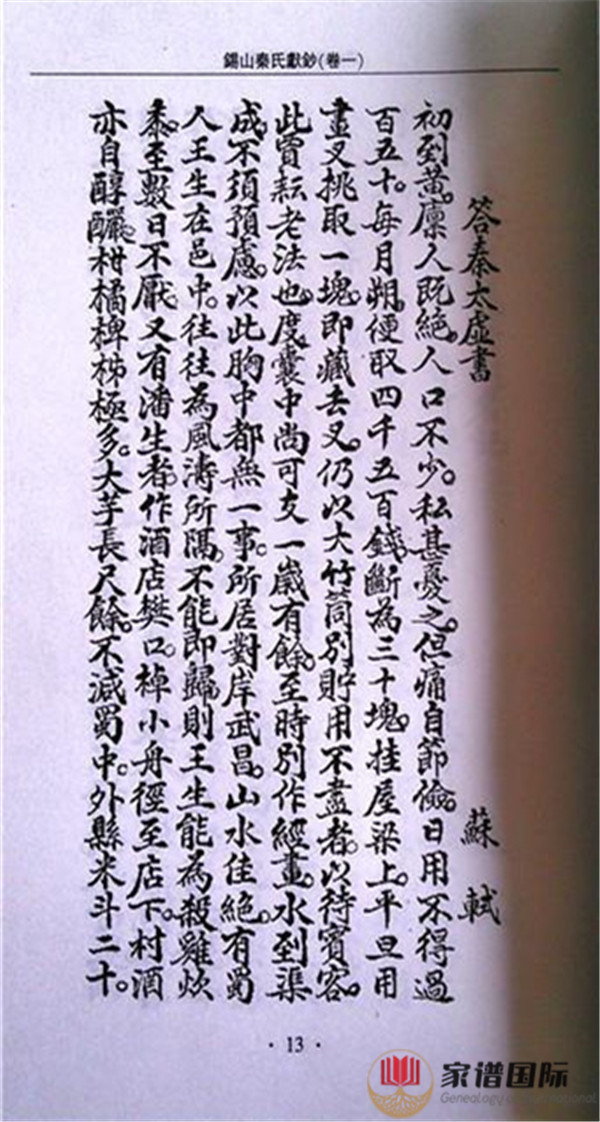 錫山秦氏獻鈔(卷一)
答秦太虛書 蘇軾
初到黃。廩人既絕。人口不少。私甚憂之。但痛自節儉。日用不得過
百五十。每月朔。便取四千五百錢。斷為三十塊。挂屋梁上。平旦用
畫叉挑取一塊。即藏去叉。仍以大竹筒別貯用不盡者。以待賓客。
此賈耘老法也。度囊中尚可支一歲有餘。至時別作經畫。水到渠
成。不須預慮。以此胸中都無一事。所居對岸武昌。山水佳絕。有蜀
人王生在邑中。往往為風濤所隔。不能即歸。則王生能為殺雞炊
黍。至數日不厭。又有潘生者。作酒店樊口。棹小舟徑至店下。村酒
亦自醇釅。柑橘椑柹極多。大芋長尺餘。不減蜀中。外縣米斗二十。
· 13 ·
家谱国际
Genealogy